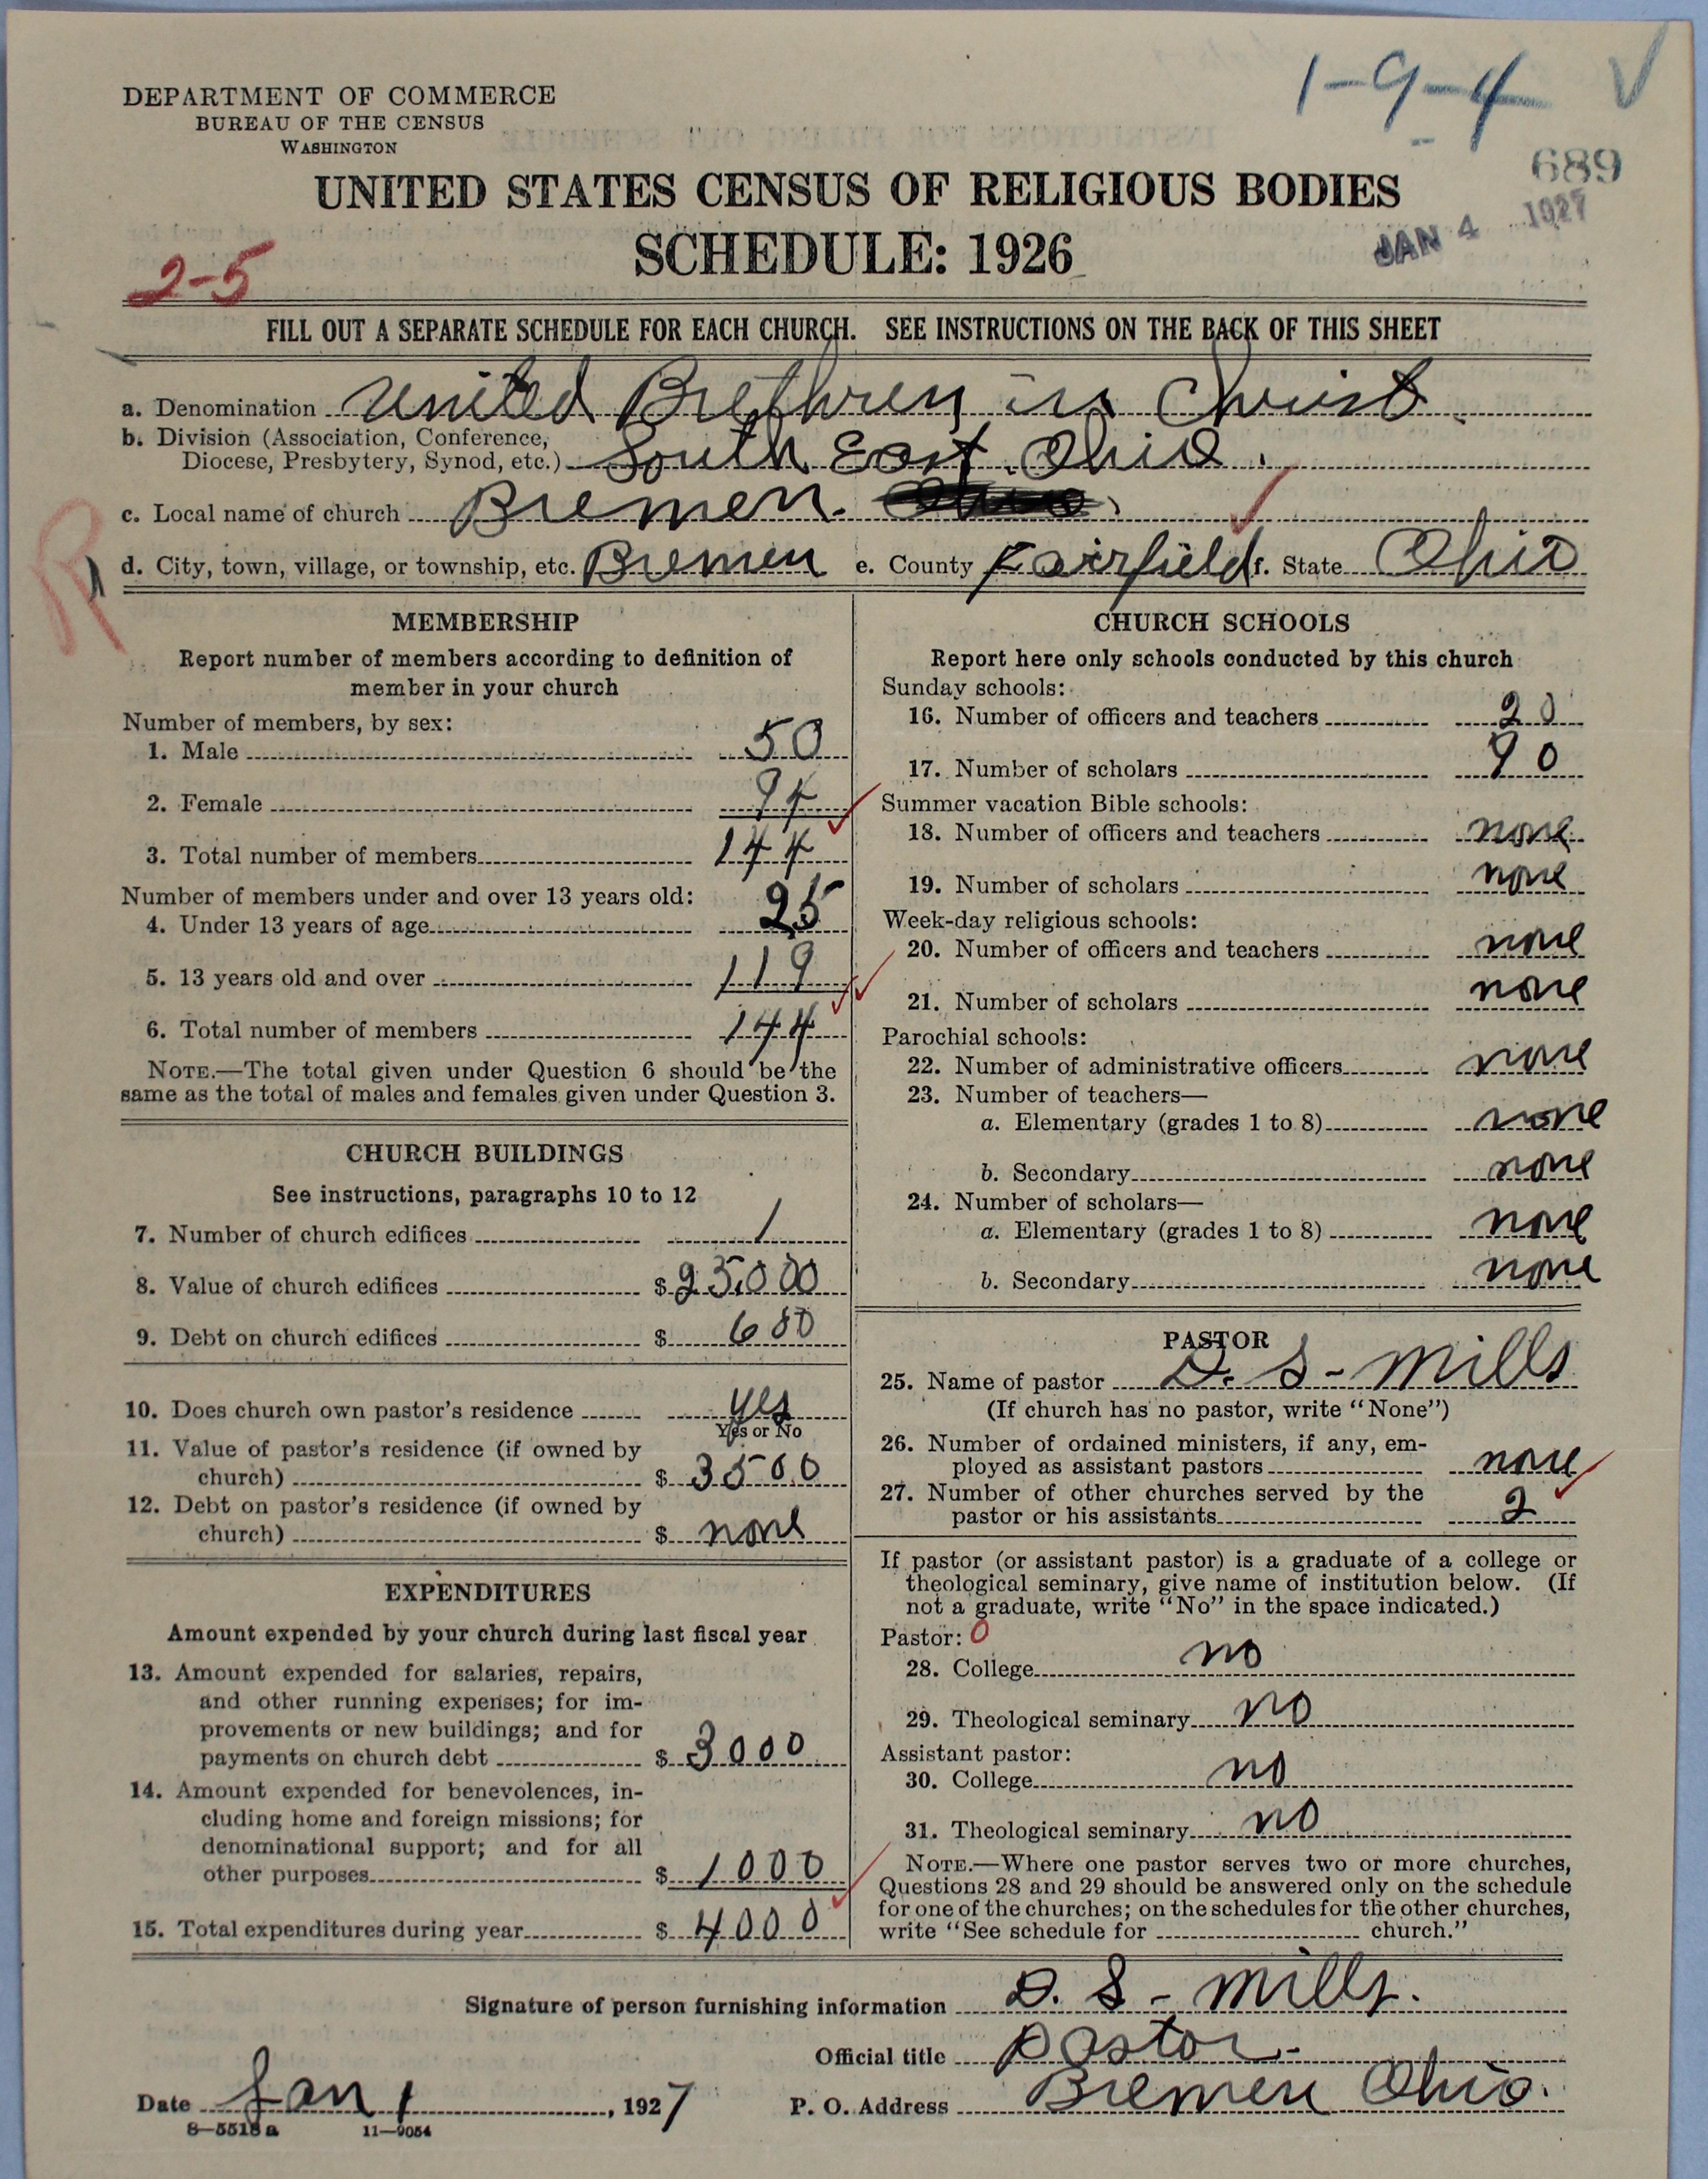 1-9-4
DEPARTMENT OF COMMERCE
BUREAU OF THE CENSUS
WASHINGTON
689
UNITED STATES CENSUS OF RELIGIOUS BODIES
JAN 4 1927
SCHEDULE: 1926
2-5
FILL OUT A SEPARATE SCHEDULE FOR EACH CHURCH. SEE INSTRUCTIONS ON THE BACK OF THIS SHEET
a. Denomination United Brethren in Christ.
b. Division (Association, Conference,
Diocese, Presbytery, Synod, etc.) South East Ohio.
c. Local name of church Bremen.
R
d. City, town, village, or township, etc. Bremen e. County Fairfield f. State Ohio
MEMBERSHIP
Report number of members according to definition of
member in your church
Number of members, by sex:
1. Male 50
2. Female 94
3. Total number of members 144
Number of members under and over 13 years old:
4. Under 13 years of age 25
5. 13 years old and over 119
6. Total number of members 144
NOTE.—The total given under Question 6 should be the
same as the total of males and females given under Question 3.
CHURCH BUILDINGS
See instructions, paragraphs 10 to 12
7. Number of church edifices 1
8. Value of church edifices $ 25,000
9. Debt on church edifices $ 680
10. Does church own pastor's residence yes
Yes or No
11. Value of pastor's residence (if owned by
church) $ 3500
12. Debt on pastor's residence (if owned by
church) $ none
EXPENDITURES
Amount expended by your church during last fiscal year
13. Amount expended for salaries, repairs,
and other running expenses; for im-
provements or new buildings; and for
payments on church debt $ 3000
14. Amount expended for benevolences, in-
cluding home and foreign missions; for
denominational support; and for all
other purposes $ 1000
15. Total expenditures during year $ 4000
CHURCH SCHOOLS
Report here only schools conducted by this church
Sunday schools:
16. Number of officers and teachers 20
17. Number of scholars 90
Summer vacation Bible schools:
18. Number of officers and teachers none
19. Number of scholars none
Week-day religious schools:
20. Number of officers and teachers none
21. Number of scholars none
Parochial schools:
22. Number of administrative officers none
23. Number of teachers—
a. Elementary (grades 1 to 8) none
b. Secondary none
24. Number of scholars—
a. Elementary (grades 1 to 8) none
b. Secondary none
PASTOR
25. Name of pastor D. S - Mills
(If church has no pastor, write "None")
26. Number of ordained ministers, if any, em-
ployed as assistant pastors none
27. Number of other churches served by the
pastor or his assistants 2
If pastor (or assistant pastor) is a graduate of a college or
theological seminary, give name of institution below. (If
not a graduate, write "No" in the space indicated.)
Pastor: 0
28. College no
29. Theological seminary no
Assistant pastor:
30. College no
31. Theological seminary no
NOTE.—Where one pastor serves two or more churches,
Questions 28 and 29 should be answered only on the schedule
for one of the churches; on the schedules for the other churches,
write "See schedule for church."
Signature of person furnishing information D. S - Mills.
Official title pastor-
Date Jan 1, 1927 P. O. Address Bremen Ohio.
8—5518 a 11—9054